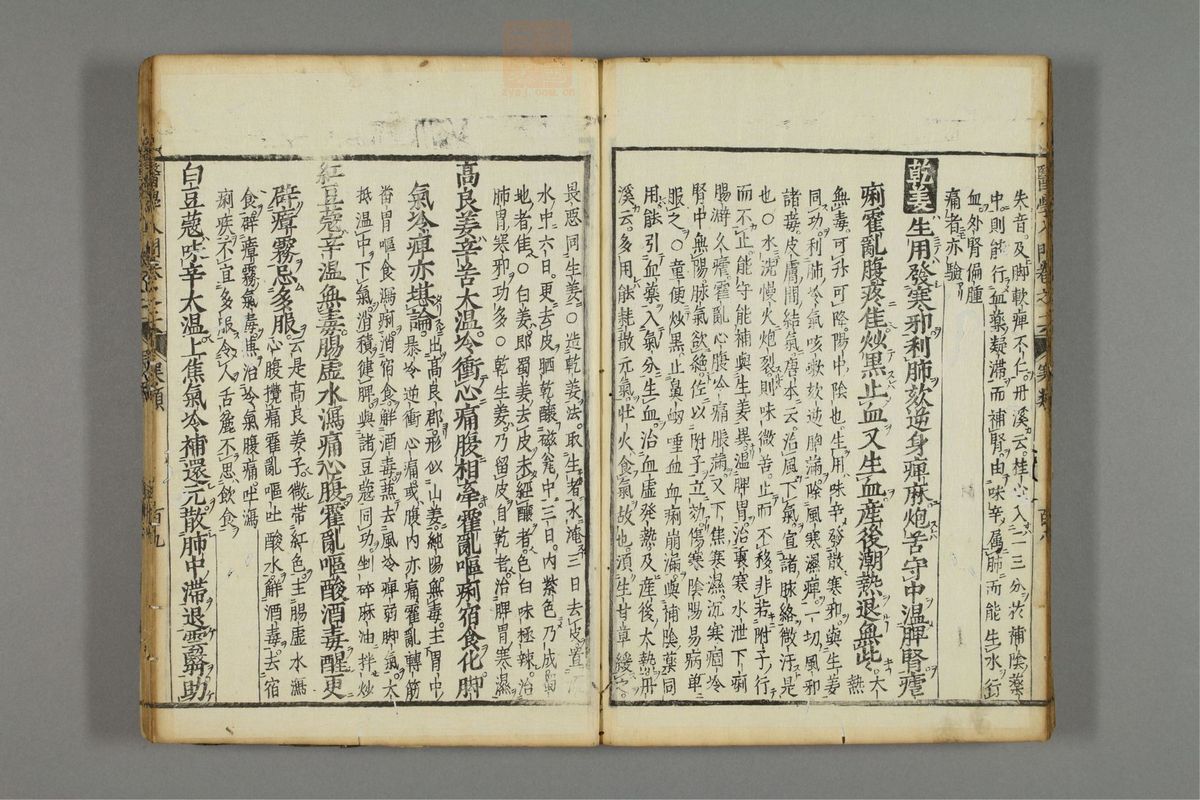 失音。及脚軟痺不仁。丹溪云。桂心入二三分於補陰藥
中。則能行血藥凝滯。而補腎。由味辛屬肺。而能生水行
血。外腎偏腫
痛者亦驗
乾姜生用發寒邪利肺欬逆身痺麻炮苦守中溫脾腎瘧
痢霍亂腹疼佳炒黑止血又生血産後潮熱退無此大熱
無毒。可升可降。陽中陰也。生用味辛。發散寒邪。與生姜
同功。利肺冷氣咳嗽。欬逆胸滿。除風寒濕痺。一切風邪
諸毒。皮膚間結氣。唐本云。治風下氣。宣諸脉絡。微汗是
也○水洗慢火炮裂則味微苦。止而不移。非若附子行
而不止。能守能補。與生姜異。溫脾胃。治裏寒水泄。下痢
腸澼。久瘧霍亂。心腹冷痛脹滿。又下焦寒濕。沉寒痼冷。
腎中無陽。脉氣欲絶。佐以附子立効。傷寒陰陽易病。單
服之○童便炒黑。止鼻衄唾血血痢崩漏。與補陰藥同
用。能引血藥入氣分生血。治血虛發熱。及產後大熱。丹
溪云。多用能耗散元氣。壯火食氣故也。須生甘草緩之。
畏惡同生姜○造乾姜法。取生者。水淹三日。去皮置
水中六日。更去皮晒乾。釀磁瓮中三日。内紫色乃成
地者佳○白姜。即蜀姜去皮未經釀者。色白味極辣。治
肺胃寒邪功多○乾生姜。乃留皮自乾者。治脾胃寒濕
高良姜辛苦大溫冷衝心痛腹相牽霍亂嘔痢宿食化脚
氣冷痺亦堪論出高良郡。形似山姜。純陽。無毒。主胃中
暴冷逆衝心痛。或腹内亦痛。霍亂轉筋
番胃嘔食。瀉痢。消宿食。解酒毒。兼去風冷痺弱脚氣。大
抵溫中下氣。消積健脾。與諸豆蔲同功。剉碎麻油拌炒
紅豆蔲辛溫無毒腸虛水瀉痛心腹霍亂嘔酸酒毒醒更
辟瘴霧忌多服云是高良姜子。微帶紅色。主腸虛水瀉
心腹攪痛。霍亂嘔吐酸水。解酒毒。去宿
食。辟瘴霧氣毒。兼治冷氣腹痛。吐瀉
痢疾。不宜多服。令人舌麄不思飲食
白豆蔲味辛大溫上焦氣冷補還元散肺中滯退雲翳助